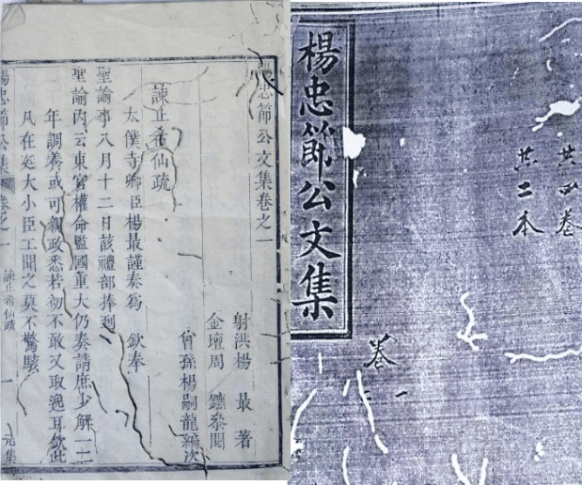 共四卷
共二本
卷一
楊忠節公文集
楊忠節公文集卷之一
射洪楊 最 著
金壇周 鑣叅閱
曾孫楊嗣龍編次
諫止希仙疏
太僕寺卿臣楊最謹奏為 欽奉
聖諭事八月十二日該禮部捧到
聖諭內云東宮權命監國重大仍奏請庶少解一二
年調養或可親政悉若初不敢又取逸耳欽此
凡在廷大小臣工聞之莫不驚駭
楊忠節公集 卷之一 諫止希仙疏 一 元集